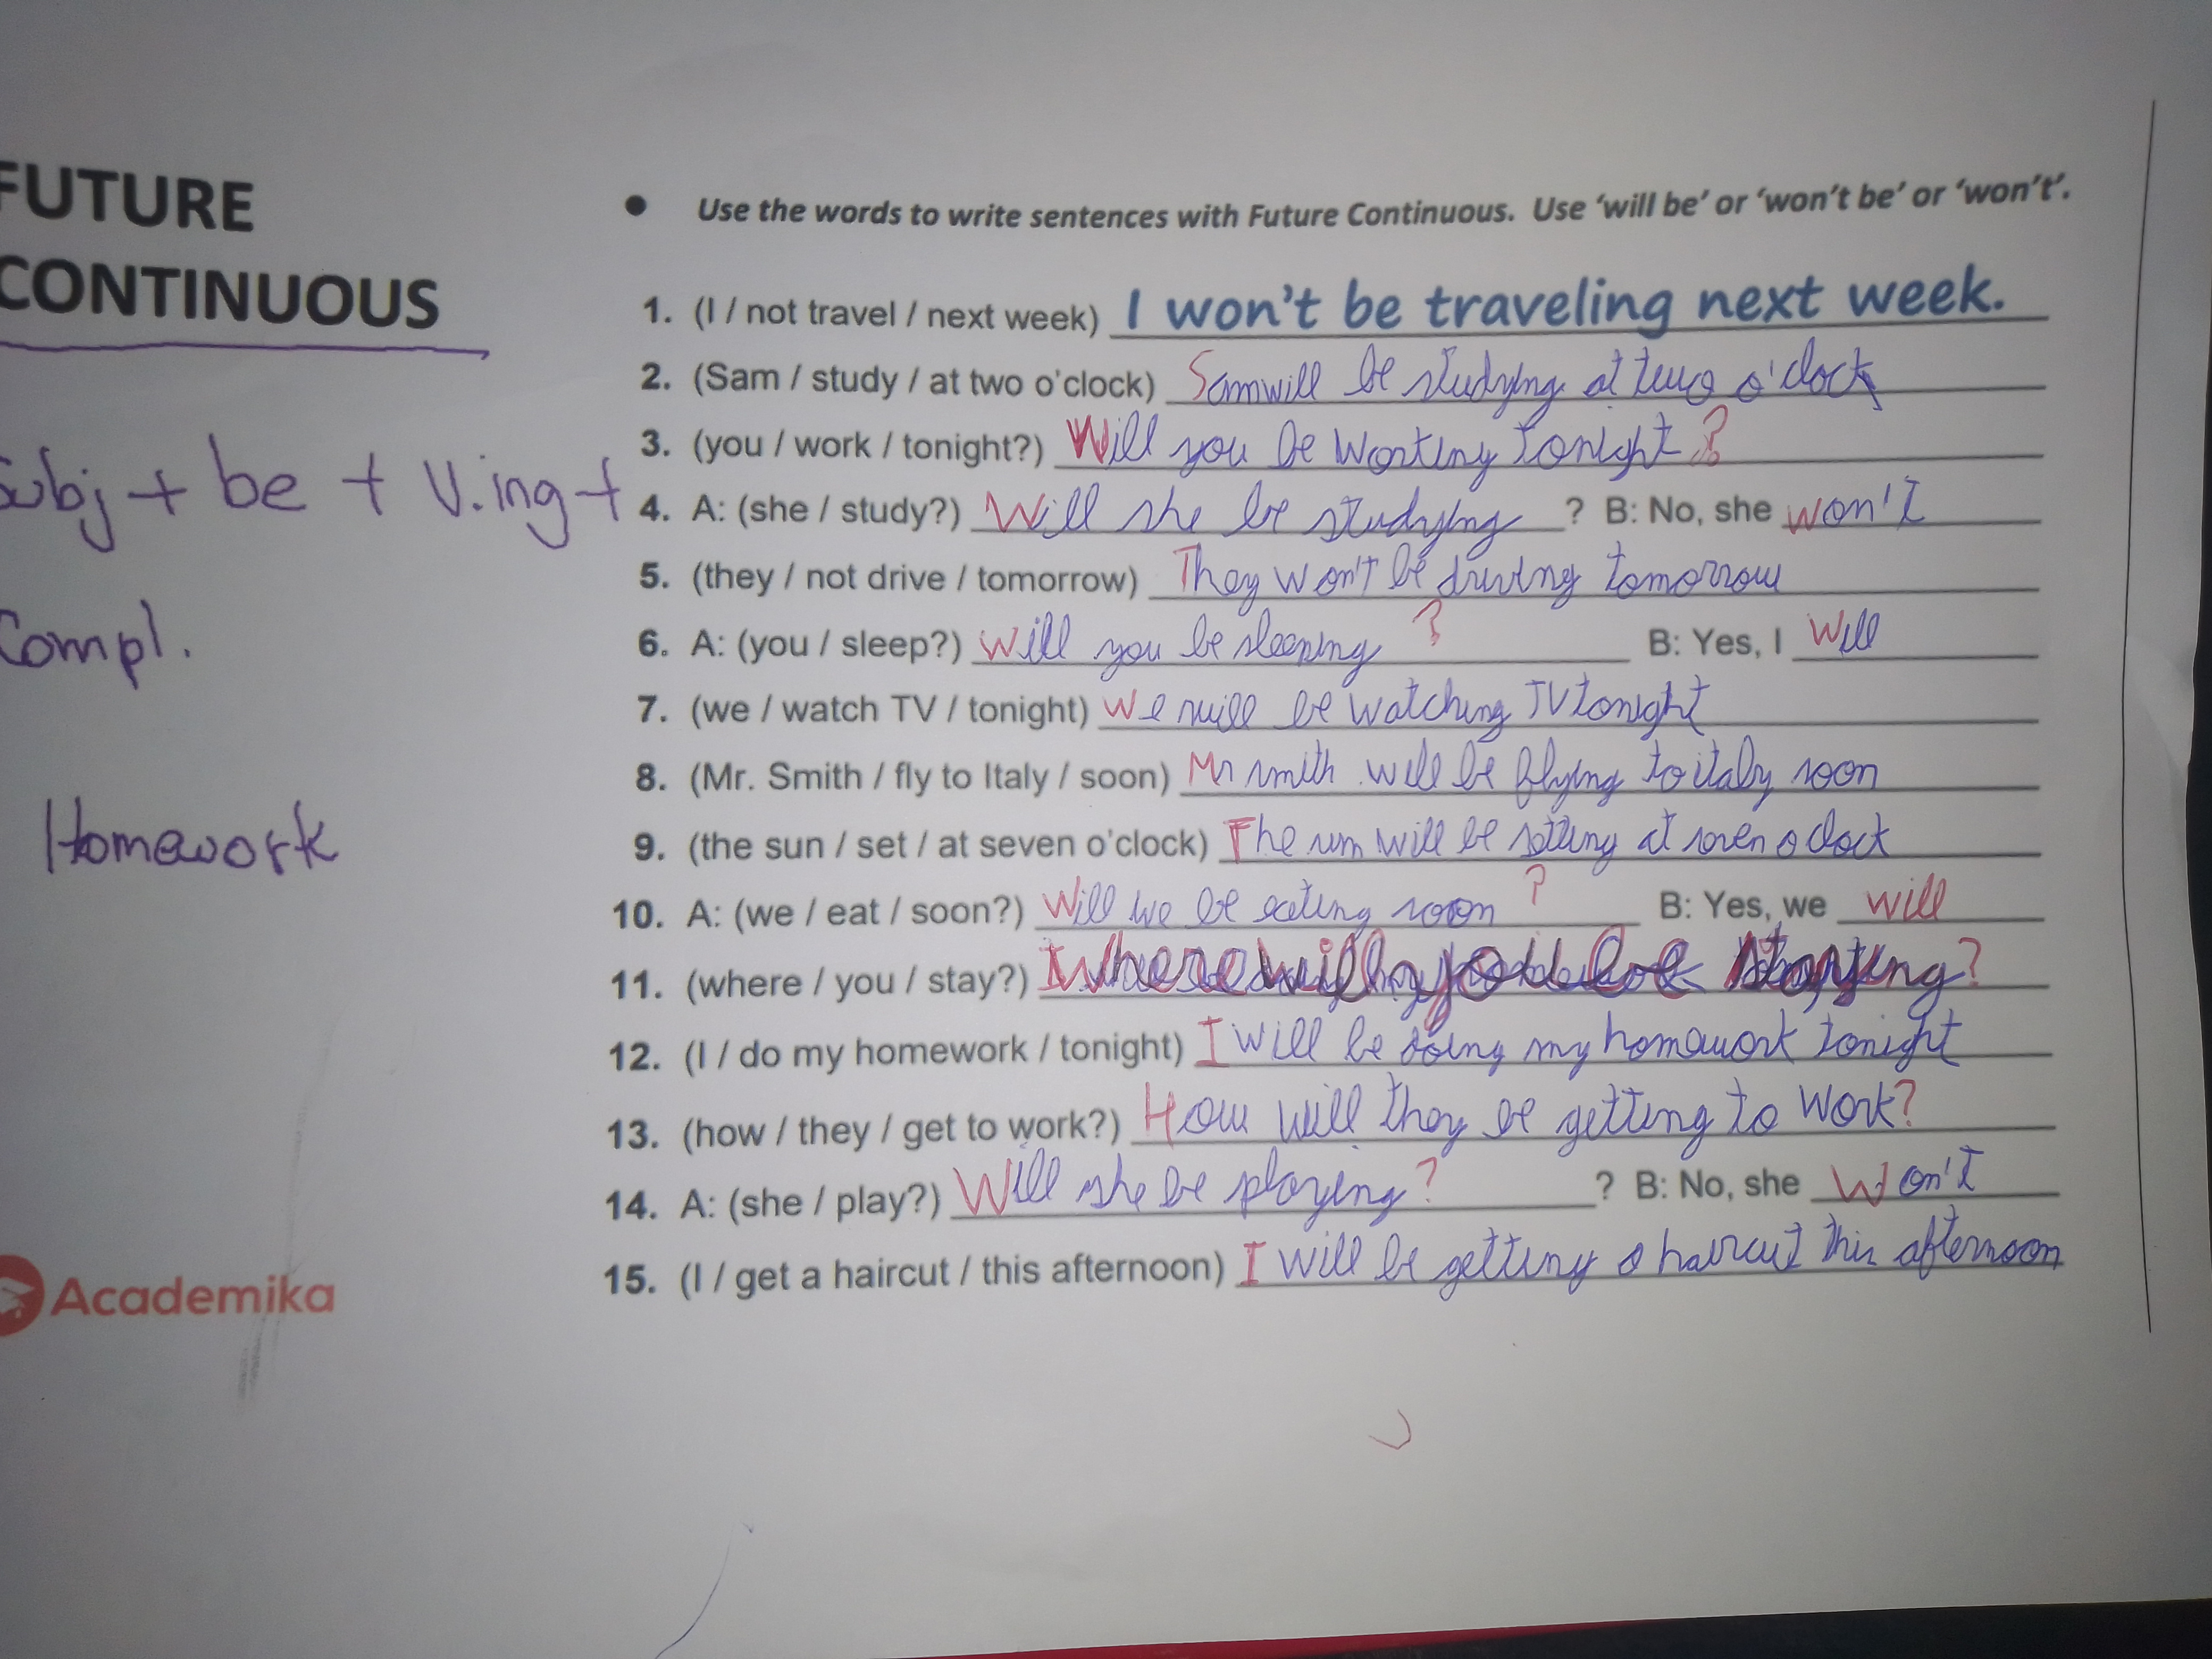 FUTURE
CONTINUOUS
Subj + be + V.ing +
Compl.
Homework
Academika
• Use the words to write sentences with Future Continuous. Use ‘will be’ or ‘won’t be’ or ‘won’t’.
1. (I / not travel / next week) I won’t be traveling next week.
2. (Sam / study / at two o'clock) Sam will be studying at two o'clock
3. (you / work / tonight?) Will you be Working tonight?
4. A: (she / study?) Will she be studying ? B: No, she won't
5. (they / not drive / tomorrow) They won't be driving tomorrow
6. A: (you / sleep?) Will you be sleeping ? B: Yes, I Will
7. (we / watch TV / tonight) We will be watching TV tonight
8. (Mr. Smith / fly to Italy / soon) Mr smith will be flying to italy soon
9. (the sun / set / at seven o'clock) The sun will be setting at seven o clock
10. A: (we / eat / soon?) Will we be eating soon ? B: Yes, we will
11. (where / you / stay?) Where will you be staying?
12. (I / do my homework / tonight) I will be doing my homework tonight
13. (how / they / get to work?) How will they be getting to work?
14. A: (she / play?) Will she be playing? ? B: No, she Won't
15. (I / get a haircut / this afternoon) I will be getting a haircut this afternoon